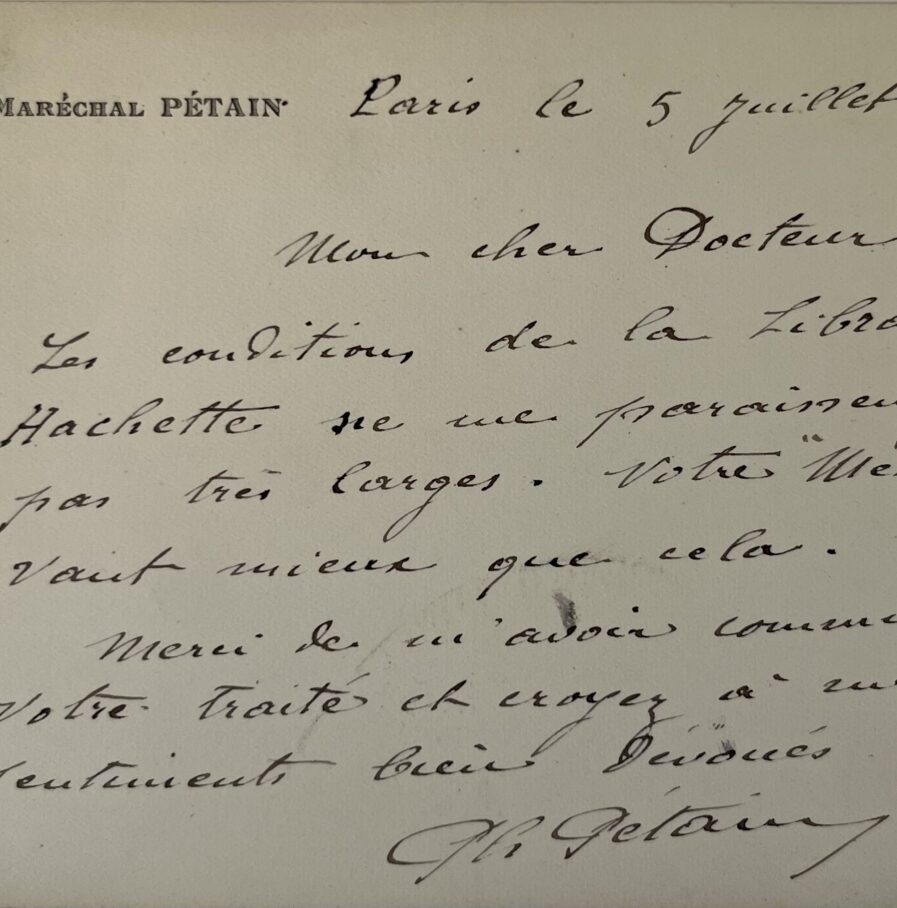 MARÉCHAL PÉTAIN Paris le 5 juillet
Mon cher Docteur
Les conditions de la Libra
Hachette ne me paraissen
pas très larges. Votre "Mé
Vaut mieux que cela.
Merci de m'avoir commu
Votre traité et croyez à m
sentiments bien dévoués
Ph Pétain